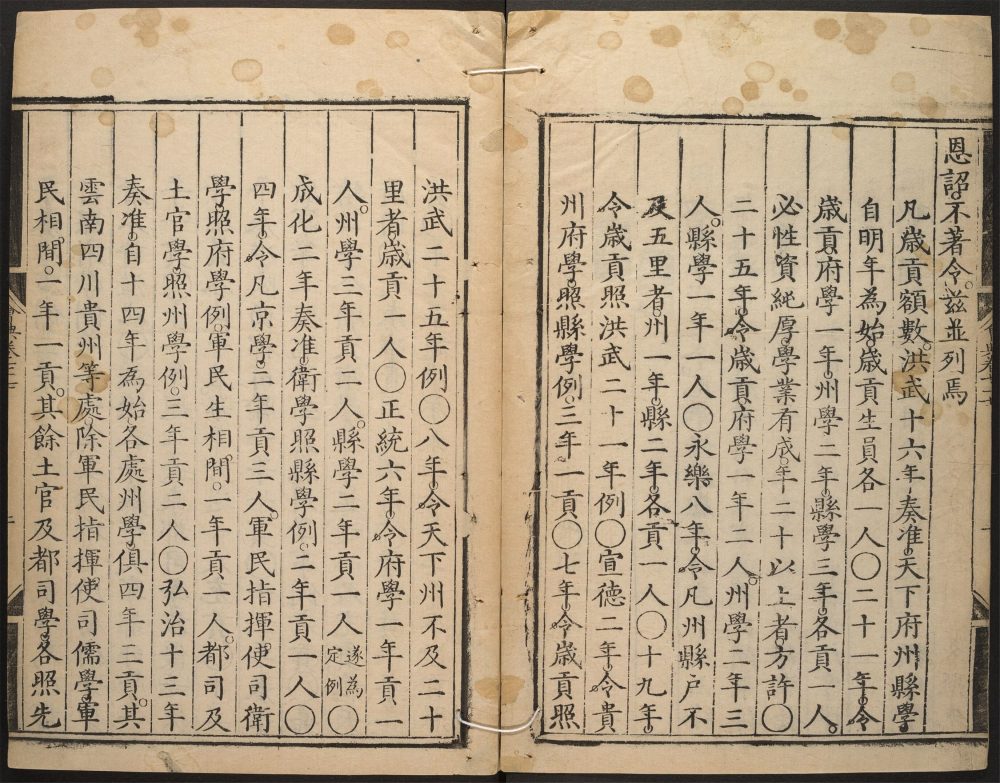 恩詔不著令茲並列焉
凡歲貢額數洪武十六年奏准天下府州縣學
自明年為始歲貢生員各一人〇二十一年令
歲貢府學一年州學二年縣學三年各貢一人
必性資純厚學業有成年二十以上者方許〇
二十五年令歲貢府學一年二人州學二年三
人縣學一年一人〇永樂八年令凡州縣戶不
及五里者州一年縣二年各貢一人〇十九年
令歲貢照洪武二十一年例〇宣德二年令貴
州府學照縣學例三年一貢〇七年令歲貢照
洪武二十五年例〇八年令天下州不及二十
里者歲貢一人〇正統六年令府學一年貢一
人州學三年貢二人縣學二年貢一人遂為定例〇
成化二年奏准衛學照縣學例二年貢一人〇
四年令凡京學二年貢三人軍民指揮使司衛
學照府學例軍民生相間一年貢一人都司及
土官學照州學例三年貢二人〇弘治十三年
奏准自十四年為始各處州學俱四年三貢其
雲南四川貴州等處除軍民指揮使司儒學軍
民相間一年一貢其餘土官及都司學各照先